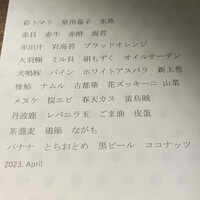 彩トマト 泉州茄子 水魚
赤貝 赤牛 赤酢 海苔
赤出汁 岩海苔 ブラッドオレンジ
大羽鰯 ミル貝 絹もずく オイルサーデン
犬鳴豚 パイン ホワイトアスパラ 新玉葱
稚鮎 ナムル 古都華 花ズッキーニ 山菜
メヌケ 桜エビ 春天カス 蛍烏賊
丹波鹿 レバニラ玉 ごま油 皮蛋
茶蕎麦 鶏節 ながも
バナナ とちおとめ 黒ビール ココナッツ
2023. April